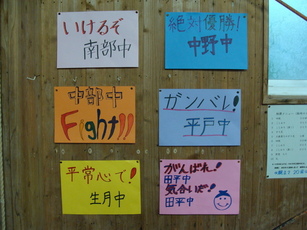 いけるぞ
南部中
絶対優勝!
中野中
中部中
Fight!!
ガンバレ!
平戸中
平常心で!
生月中
がんばれ!
田平中
気合いだ!
田平中